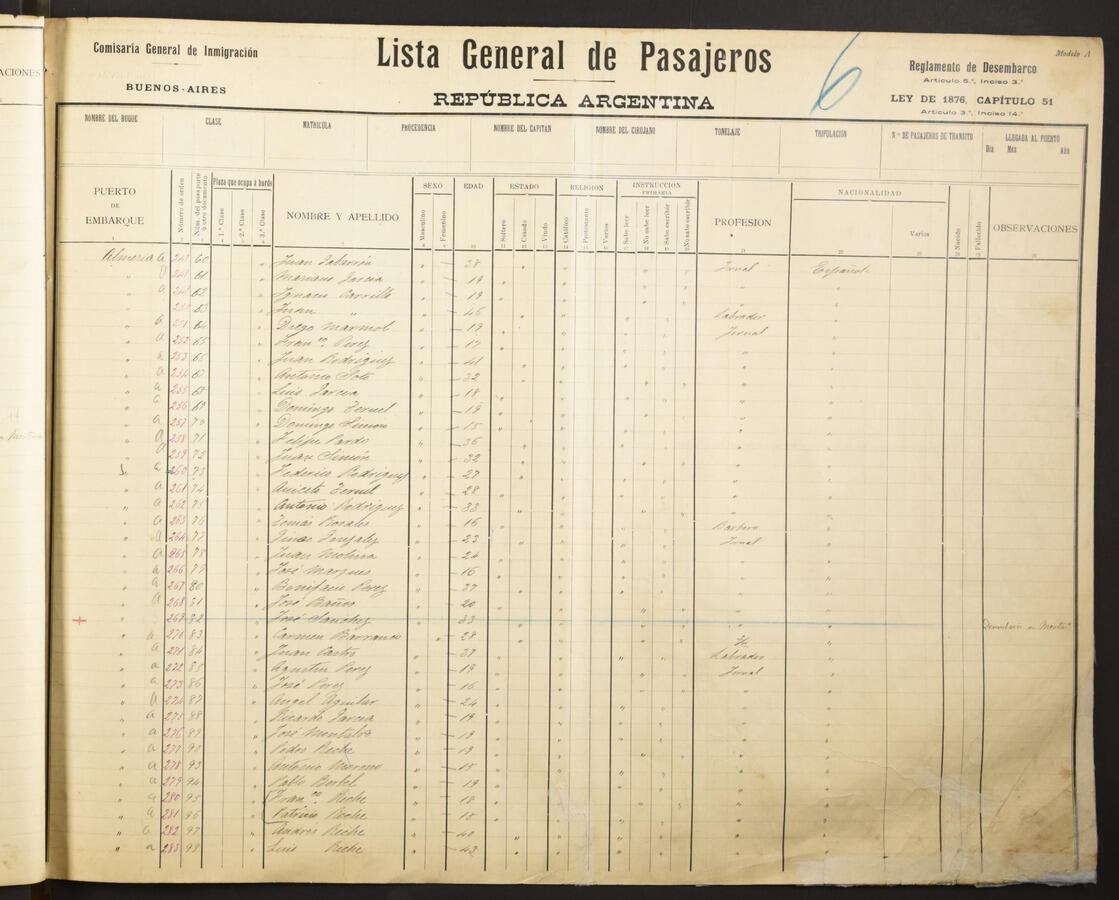 ACIONES
Comisaría General de Inmigración
BUENOS-AIRES
Lista General de Pasajeros
REPÚBLICA ARGENTINA
6
Modelo A
Reglamento de Desembarco
Artículo 5.º, Inciso 3.º
LEY DE 1876, CAPÍTULO 51
Artículo 3.º, Inciso 14.º
NOMBRE DEL BUQUE CLASE MATRICULA PROCEDENCIA NOMBRE DEL CAPITAN NOMBRE DEL CIRUJANO TONELAJE TRIPULACIÓN N.º DE PASAJEROS DE TRANSITO LLEGADA AL PUERTO
Dia Mes Año
PUERTO DE EMBARQUE Número de orden Núm. del pasaporte ú otro documento Plaza que ocupa á bordo 1.ª Clase 2.ª Clase 3.ª Clase NOMBRE Y APELLIDO SEXO Masculino Femenino EDAD ESTADO Soltero Casado Viudo RELIGION Católico Protestante Varios INSTRUCCION PRIMARIA Sabe leer No sabe leer Sabe escribir No sabe escribir PROFESION NACIONALIDAD Varios Nacido Fallecido OBSERVACIONES
Almeria a 60 Juan 28 Jrnal Española
61 Mariano Garcia 19
a 62 Ignacio Carrillo 19
63 Juan " 46 Labrador
a 251 64 Diego Marmol 19 Jornal
a 252 65 Fran.co Perez 17
a 253 66 Juan Rodriguez 41
254 67 Antonio Soto 32
a 255 68 Luis Garcia 18
a 256 69 Domingo Teruel 19
a 257 70 Domingo Simon 15
a 258 71 Felipe Pardo 36
a 259 72 Juan Simón 32
a 260 73 Federico Rodriguez 27
a 261 74 Aniceto Teruel 28
a 262 75 Antonio Rodriguez 33
a 263 76 Tomas Rosales 16 Barbero
a 264 77 Gonzalez 23 Jrnal
a 265 78 Juan Molina 24
a 266 79 José Marques 16
a 267 80 Bonifacio Perez 37
a 268 81 José Baños 20
269 82 José Sanchez 33
a 270 83 Carmen Barranco 28
a 271 84 Juan Castro 37 Labrador
a 272 85 Agustin Perez 19 Jornal
a 273 86 José Perez 16
a 274 87 Angel Aguilar 24
a 275 88 Ricardo Garcia 19
a 276 89 José Montalvo 19
a 277 90 Pedro Reche 19
a 278 93 Antonio Moreno 15
a 279 94 Pablo 19
a 280 95 Fran.co Reche 18
a 281 96 Patricio Reche 15
a 282 97 Andres Reche 40
a 283 98 Luis Reche 43